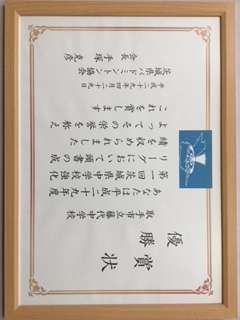 賞状
優勝
取手市立藤代中学校
あなたは平成二十二年度
第一回茨城県中学校強化
リーグにおいて頭書の成
績を収められました
よってその栄誉を称え
これを賞します
平成二十二年四月二十九日
茨城県バドミントン協会
会長 手塚